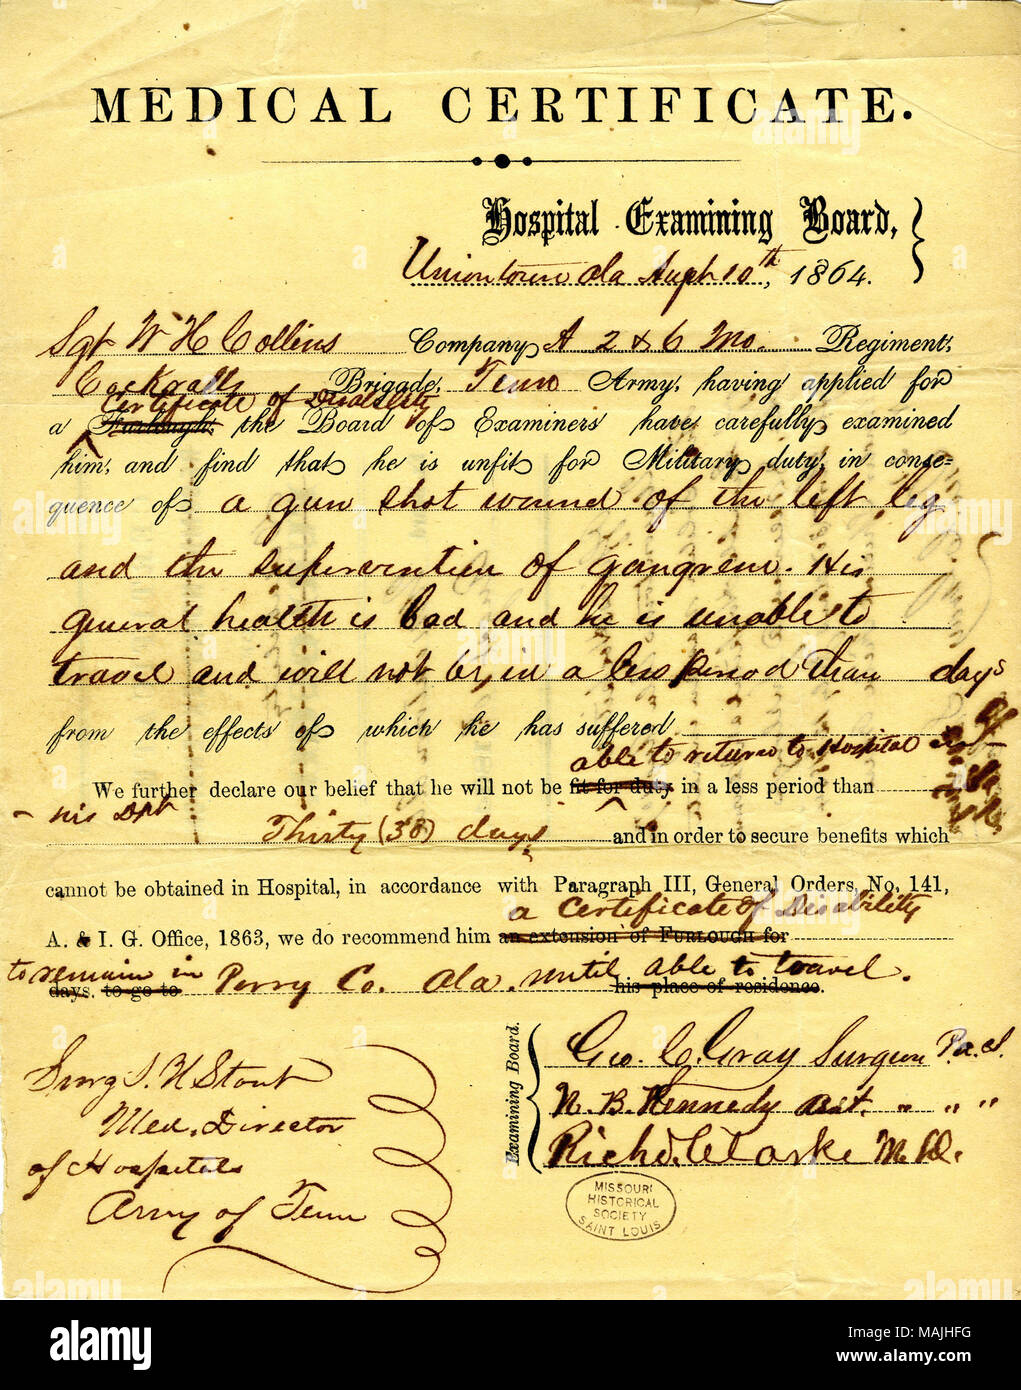 MEDICAL CERTIFICATE.
Hospital Examining Board,
Uniontown Ala Augt 10th, 1864.
Sgt W H Collins Company A 2 & 6 Mo. Regiment,
Cockralls Brigade, Tenn Army, having applied for
Certificate of Disability
a Furlough, the Board of Examiners have carefully examined
him, and find that he is unfit for Military duty, in conse-
quence of a gun shot wound of the left leg
and the supervention of gangrene. His
general health is bad and he is unable to
travel and will not be, in a less period than days
from the effects of which he has suffered
able to return to Hospital
We further declare our belief that he will not be fit for duty in a less period than
his Dpt
Thirty (30) days and in order to secure benefits which
cannot be obtained in Hospital, in accordance with Paragraph III, General Orders, No. 141,
a Certificate of Disability
A. & I. G. Office, 1863, we do recommend him an extension of FURLOUGH for
to remain in Perry Co. Ala. until able to travel.
days, to go to his place of residence.
Examining Board.
Geo. C. Gray Surgeon Pa.c.s.
N. B. Kennedy asst. " " "
Richd. Clarke M.D.
Surg S. H Stout
Med. Director
of Hospitals
Army of Tenn
MISSOURI
HISTORICAL
SOCIETY
SAINT LOUIS
alamy
Image ID: MAJHFG
www.alamy.com